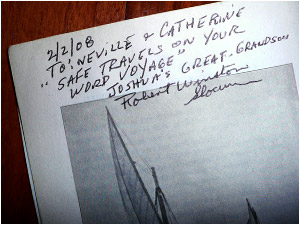 2/2/08
TO: NEVILLE & CATHERINE
"SAFE TRAVELS ON YOUR
WORD VOYAGE"
JOSHUA'S GREAT-GRANDSON
Robert Winston
Slocum